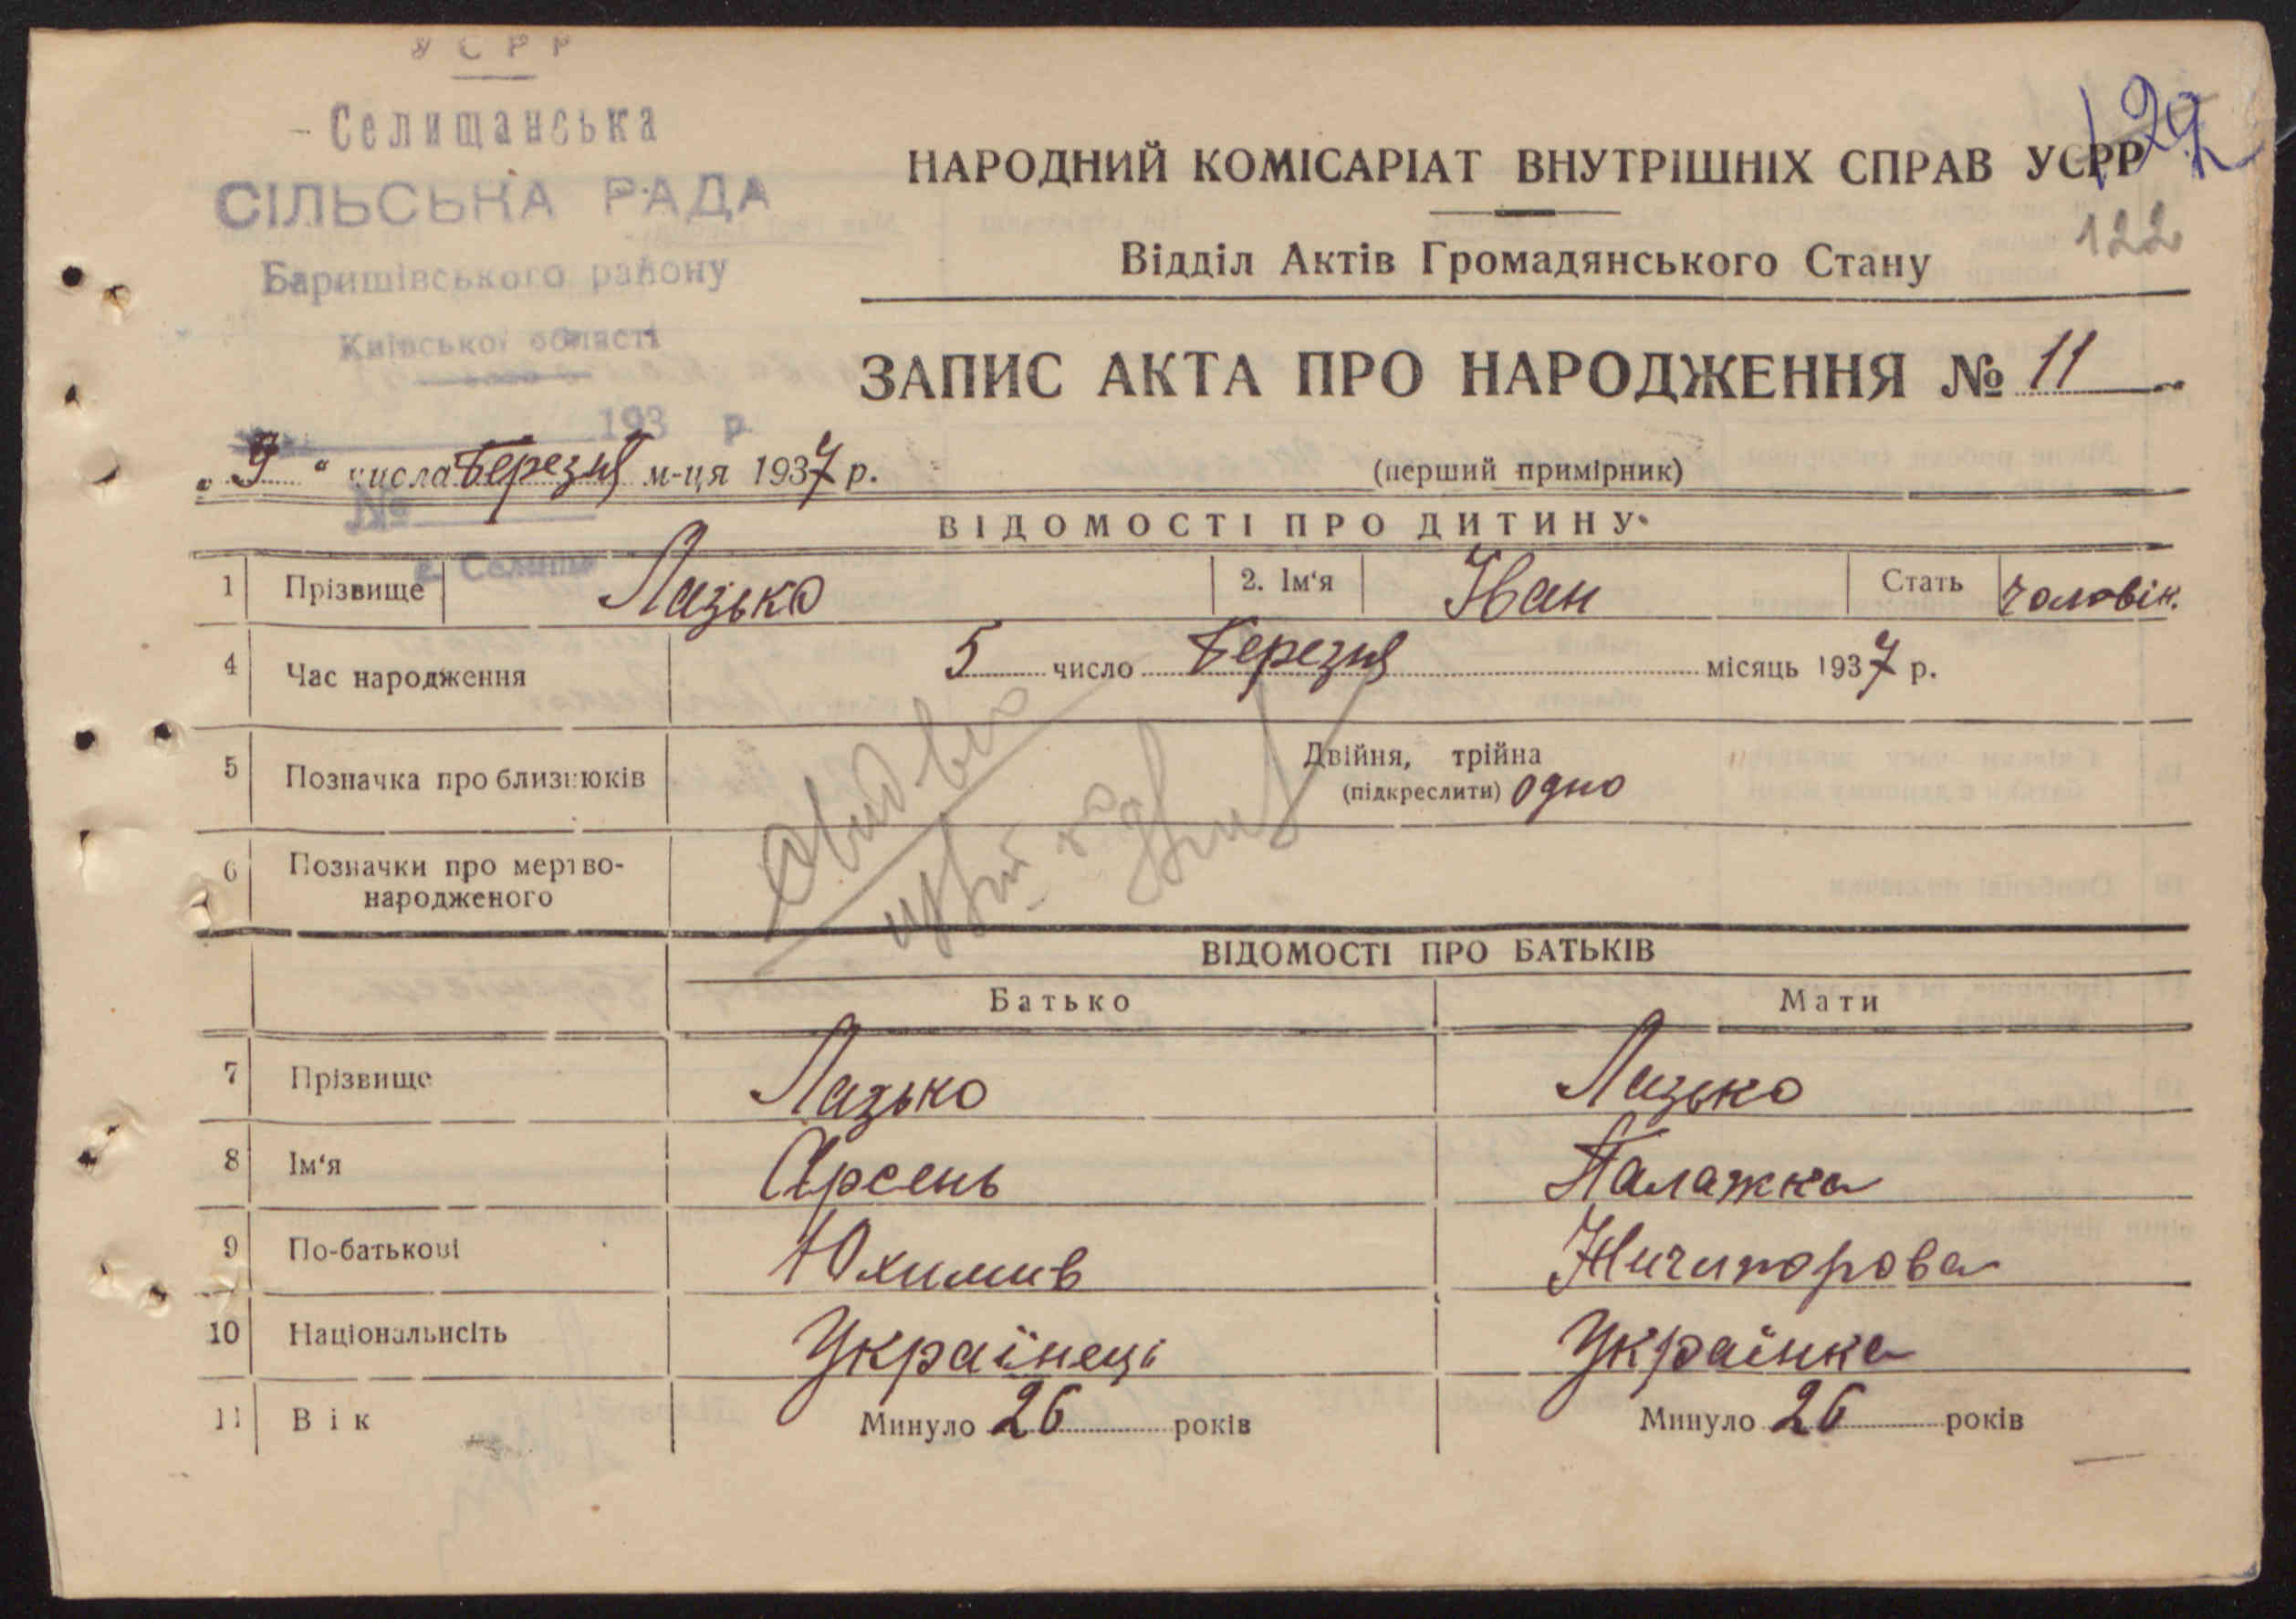 УСРР
Селищанська
СІЛЬСЬКА РАДА
Баришівського району
Київської области
193 р.
№
с. Селище
122
НАРОДНИЙ КОМІСАРІАТ ВНУТРІШНІХ СПРАВ УСРР
122
Відділ Актів Громадянського Стану
ЗАПИС АКТА ПРО НАРОДЖЕННЯ № 11
„9“ числа Березня м-ця 1937 р.
(перший примірник)
ВІДОМОСТІ ПРО ДИТИНУ
1 Прізвище Лазько 2. Ім‘я Іван Стать чоловік.
4 Час народження 5 число Березня місяць 1937 р.
5 Позначка про близнюків Двійня, трійна
(підкреслити) одно
6 Позначки про мертво-
народженого
ВІДОМОСТІ ПРО БАТЬКІВ
Батько Мати
7 Прізвище Лазько Лазько
8 Ім‘я Арсень Палажка
9 По-батькові Юхимив Ничипорова
10 Національнсіть Українець Українка
11 Вік Минуло 26 років Минуло 26 років